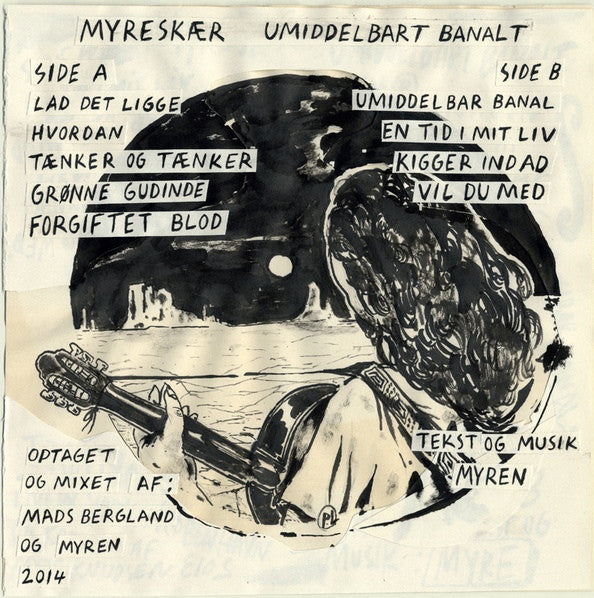 MYRESKÆR UMIDDELBART BANALT
SIDE A
LAD DET LIGGE
HVORDAN
TÆNKER OG TÆNKER
GRØNNE GUDINDE
FORGIFTET BLOD
SIDE B
UMIDDELBAR BANAL
EN TID I MIT LIV
KIGGER INDAD
VIL DU MED
OPTAGET
OG MIXET AF:
MADS BERGLAND
OG MYREN
2014
TEKST OG MUSIK
MYREN